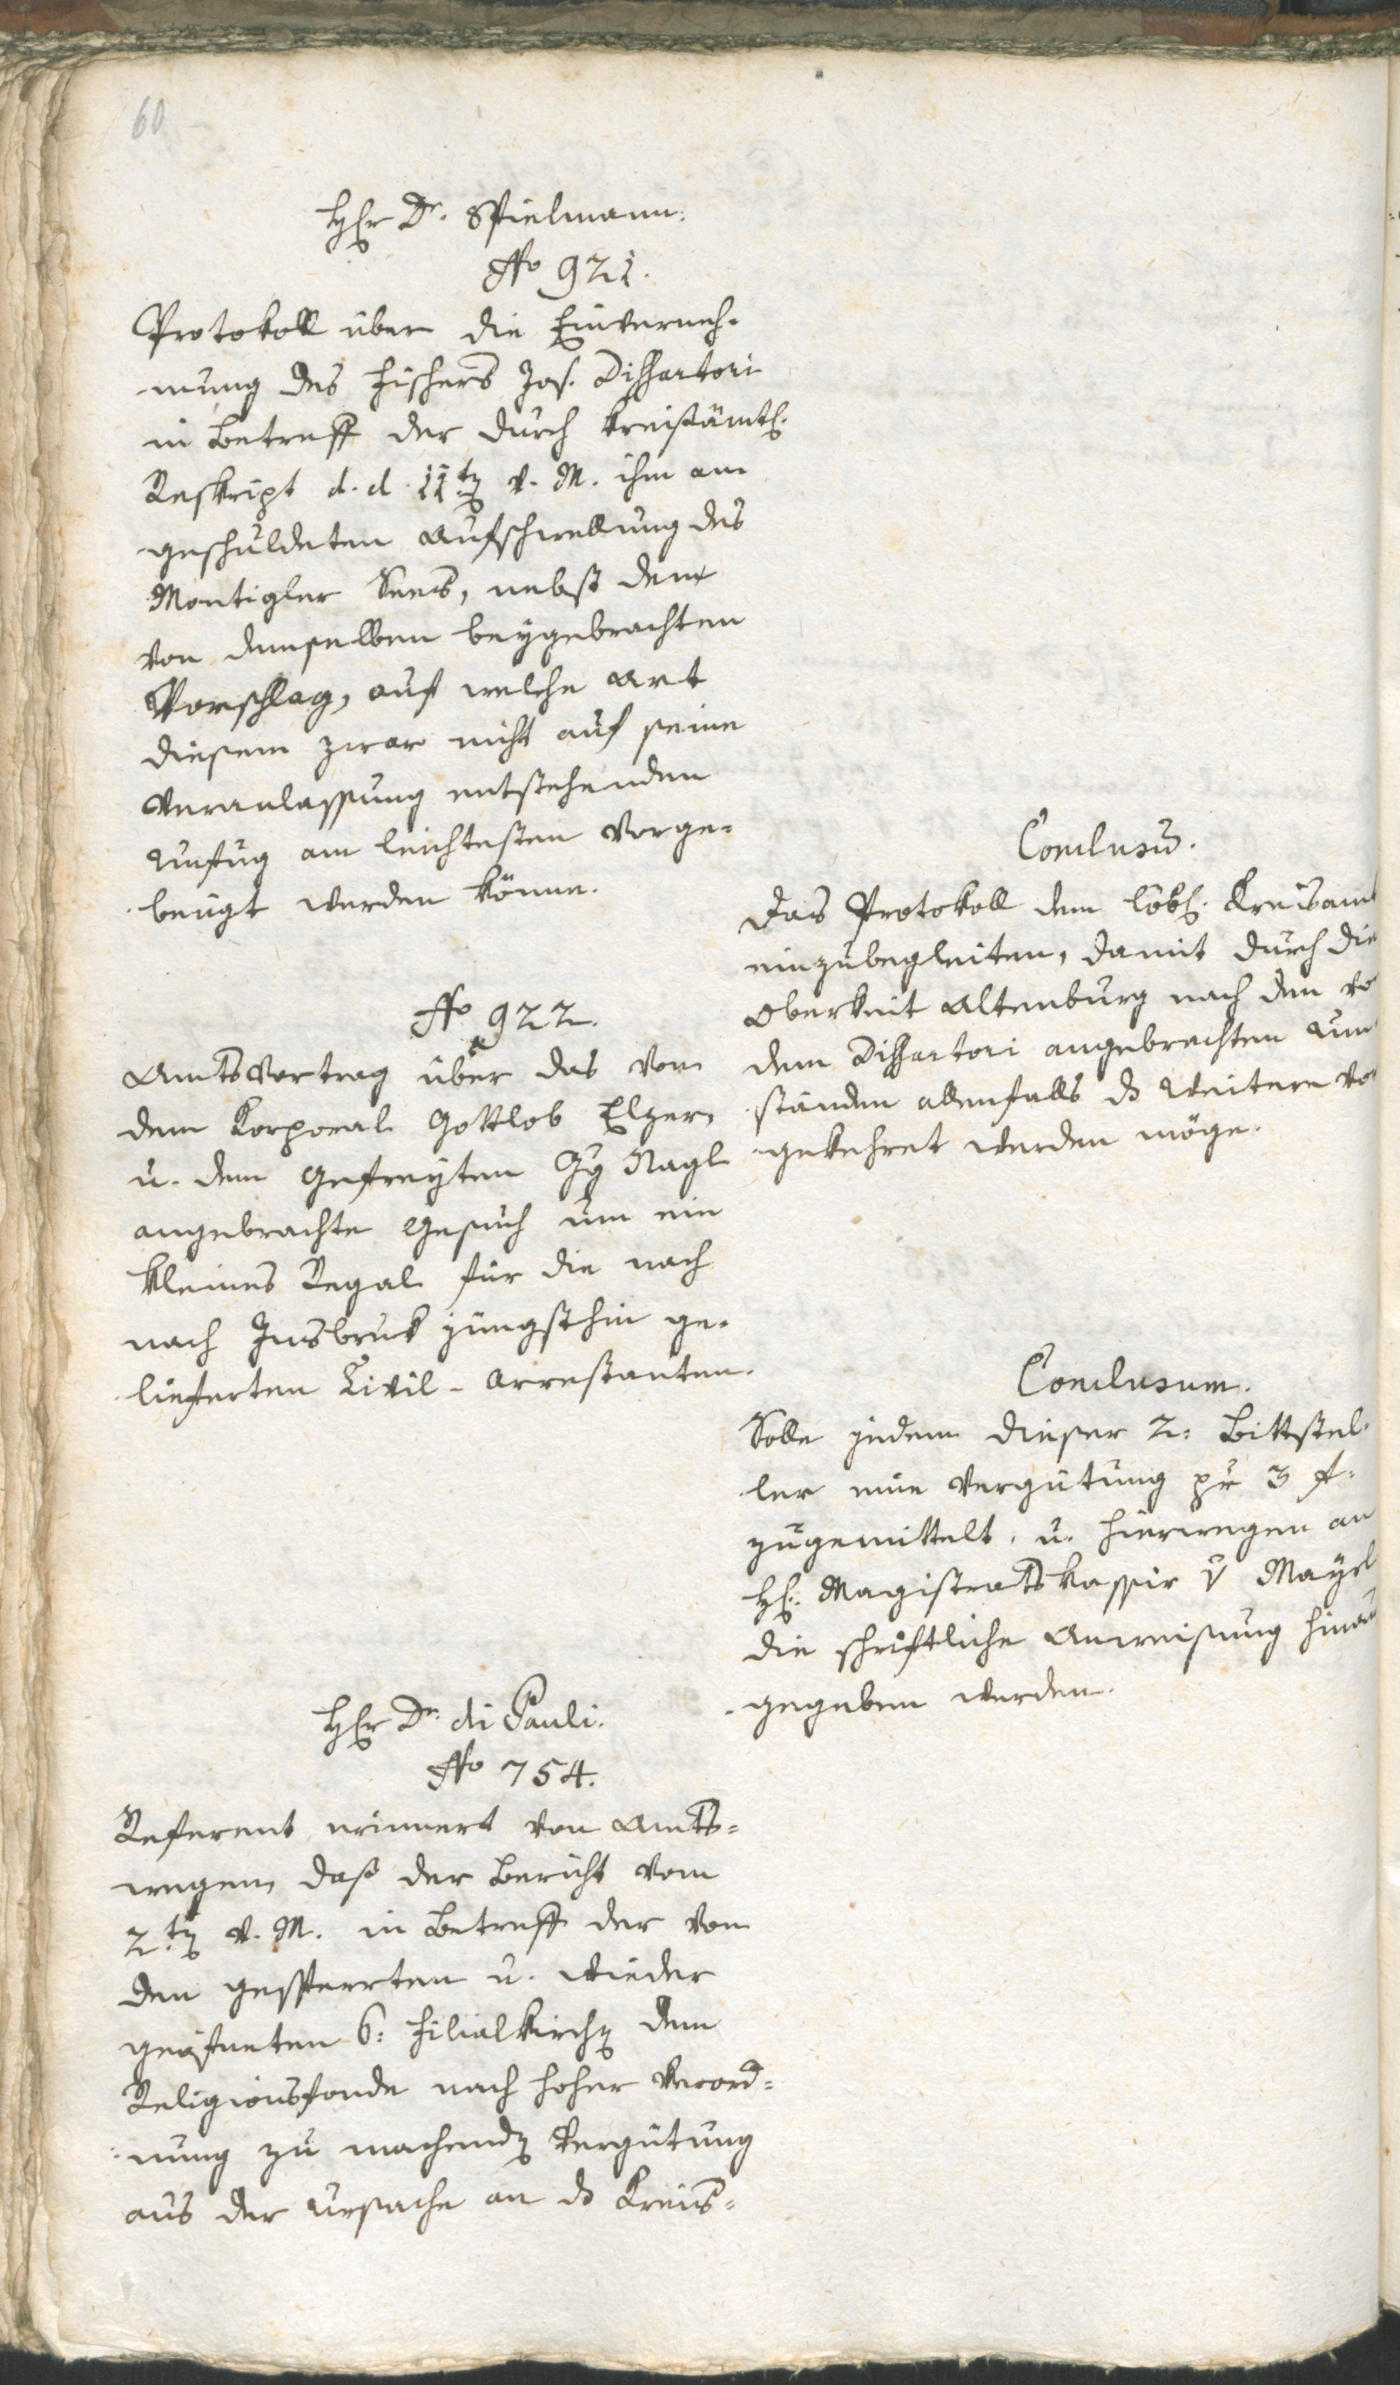 60
HEr Dr. Spielmann.
No 921.
Protokoll über die Einverneh-
mung des Fischers Jos. Dissertori
in Betreff der durch kreisämtl.
Reskript d. d. 11ten v. M. ihm an
geschuldeten Aufschwellung des
Montigler Sees, nebst dem
von demselben beygebrachten
Vorschlag, auf welche Art
diesem zwar nicht auf seine
Veranlassung entstehenden
Unfug am leichtesten vorge-
beugt werden könne.
Conclusum.
Das Protokoll dem löbl. Kreisamt
einzubegleiten, damit durch die
Oberkeit Altenburg nach den vo
dem Dissertori angebrachten Um
ständen allenfalls ds Weitere vo
gekehret werden möge.
No 922.
Amtsvortrag über das von
dem Korporal Gottlob Elzer,
u. dem Gefreyten Gg Nagl
angebrachte Gesuch um ein
kleines Regal für die nach
nach Insbruk jüngsthin ge-
lieferten Civil-Arrestanten.
Conclusum.
Solle jedem dieser 2: Bittstel-
ler eine Vergütung pr 3 f.
zugemittelt, u. hierwegen an
H. Magistratskassir v Mayrl
die schriftliche Anweisung hinau
gegeben werden.
HEr Dr. di Pauli.
No 754.
Referent erinnert von Amts-
wegen, daß der Bericht vom
2ten v. M. in Betreff der von
den gesperrten u. wieder
geöfneten 6: Filialkirchen dem
Religionsfonde nach hoher Verord-
nung zu machenden Vergütung
aus der Ursache an ds Kreis-